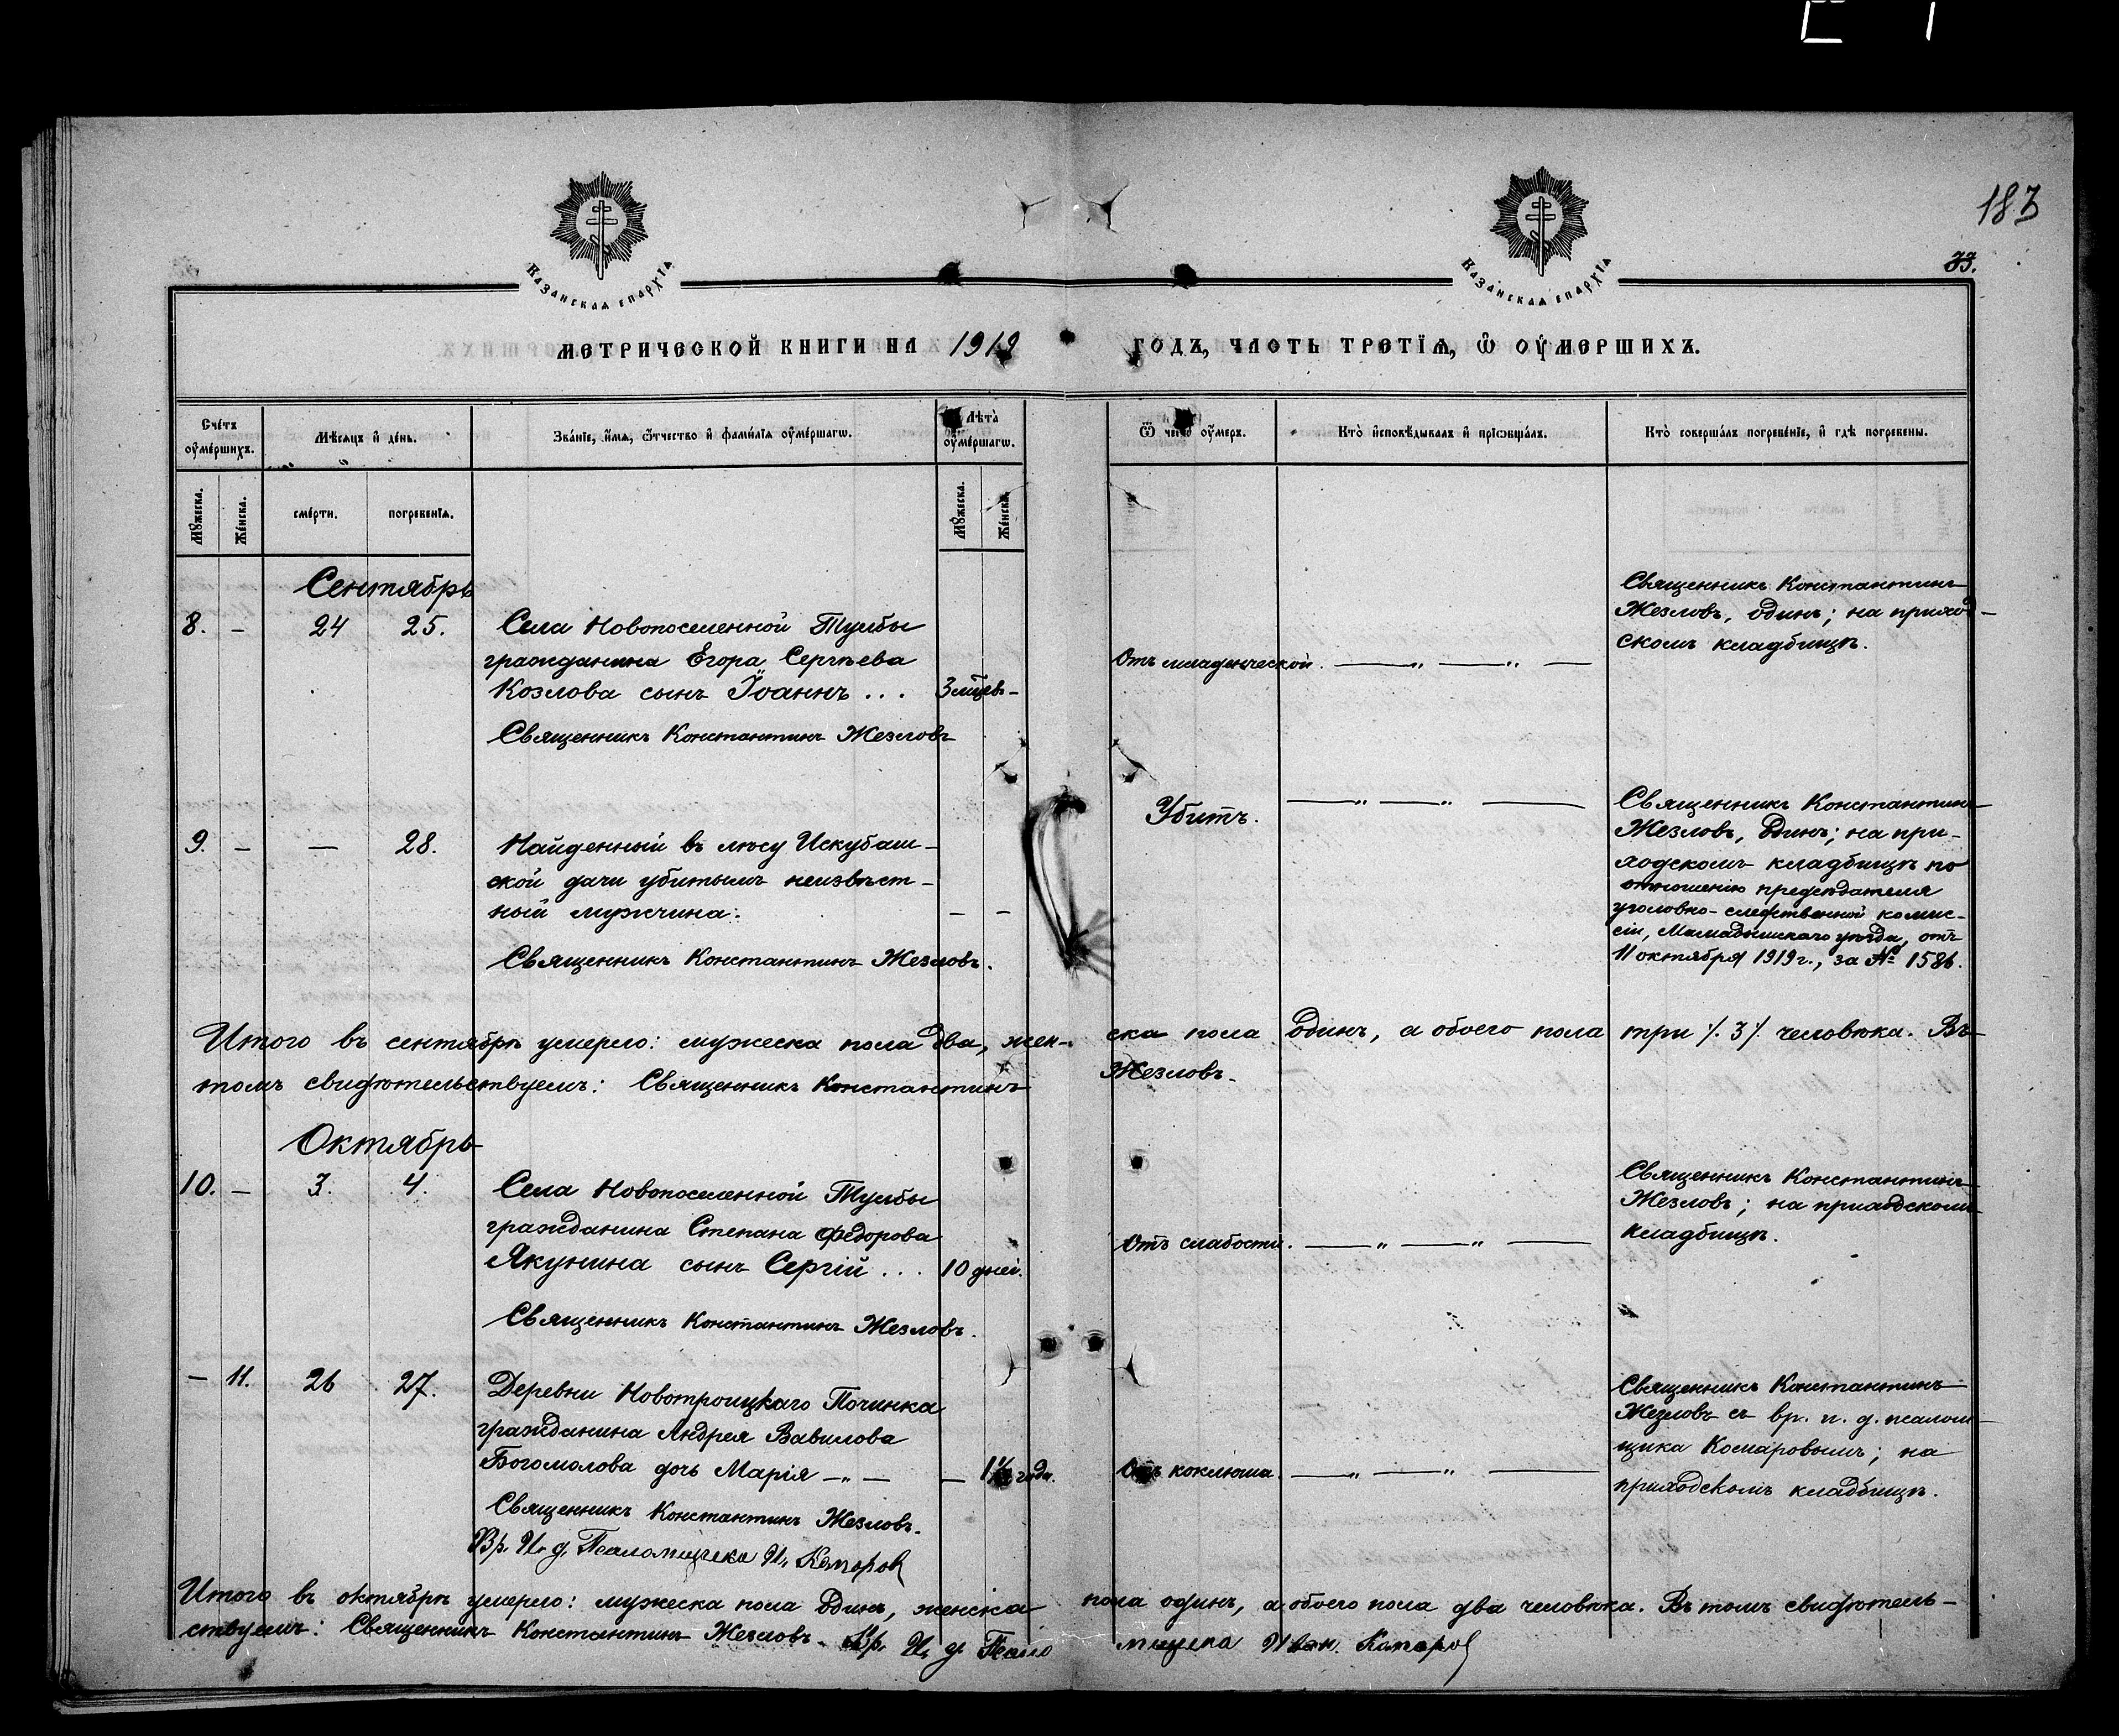 183
33.
КАЗАНСКАѦ ЕПАРХІѦ
КАЗАНСКАѦ ЕПАРХІѦ
МЕТРИЧЕСКОЙ КНИГИ НА 1919 ГОДЪ, ЧАСТЬ ТРЕТІѦ, Ѽ ОУМЕРШИХЪ.
Счетъ оумершихъ.
Мѣсяцъ и день.
Званіе, имѧ, ѿтчество и фамиліѧ оумершагѡ.
Лѣта оумершагѡ.
Ѿ чего оумеръ.
Кто исповѣдывалъ и прїѡбщалъ.
Кто совершалъ погребеніе, и гдѣ погребены.
Мꙋжеска.
Женска.
смерти.
погребеніѧ.
Мꙋжеска.
Женска.
Сентябрь
8. – 24 25.
Села Новопоселенной Тулбы
гражданина Егора Сергѣева
Козлова сынъ Іоаннъ . . . 3 мѣсев–
Священникъ Константинъ Жезловъ
Отъ младенческой. — „ — „ —
Священникъ Константинъ
Жезловъ, одинъ; на приход-
скомъ кладбищѣ.
9. – — 28.
Найденный въ лѣсу Искубаш-
ской дачи убитымъ неизвѣст-
ный мужчина. – –
Священникъ Константинъ Жезловъ.
Убитъ. — „ — „ —
Священникъ Константинъ
Жезловъ, одинъ; на при-
ходскомъ кладбищѣ по
отношенію предсѣдателя
уголовно-слѣдственной комис-
сіи, Мамадышскаго уѣзда, отъ
11 октября 1919 г., за № 1586.
Итого въ сентябрѣ умерло: мужеска пола два, жен- ска пола одинъ, а обоего пола три /. 3 /. человѣка. Въ
томъ свидѣтельствуемъ: Священникъ Константинъ Жезловъ.
Октябрь
10. – 3. 4.
Села Новопоселенной Тулбы
гражданина Степана Федорова
Якунина сынъ Сергій . . . 10 дней.
Священникъ Константинъ Жезловъ.
Отъ слабости. — „ — „ —
Священникъ Константинъ
Жезловъ; на приходскомъ
кладбищѣ.
– 11. 26 27.
Деревни Новотроицкаго Починка
гражданина Андрея Вавилова
Богомолова дочь Марія – „ – – 1½ года.
Священникъ Константинъ Жезловъ.
Вр. И. д. Псаломщика И. Комаров
Отъ коклюша. — „ — „ —
Священникъ Константинъ
Жезловъ съ вр. и. д. псалом-
щика Комаровымъ; на
приходскомъ кладбищѣ.
Итого въ октябрѣ умерло: мужеска пола одинъ, женска пола одинъ, а обоего пола два человѣка. Въ томъ свидѣтель-
ствуемъ: Священникъ Константинъ Жезловъ. Вр. И. д. Псало мщика Иван. Комаров